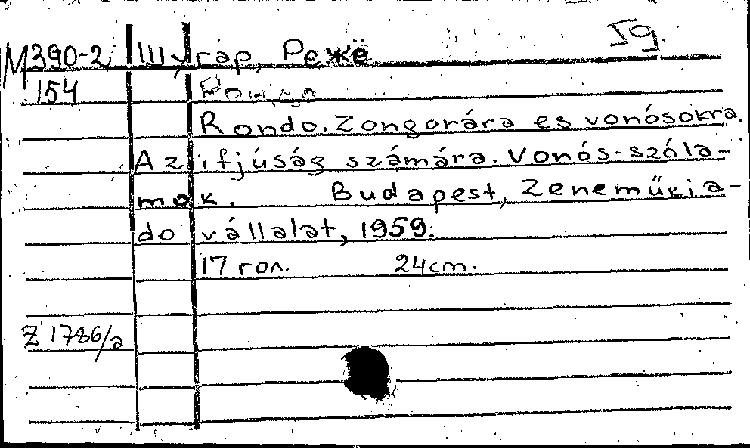 М390-2 Шугар, Режё 59.
154 Рондо
Rondo. Zongorára es vonósokra.
Az ifjúság számára. Vonós-szóla-
mok. Budapest, Zeneműkia-
do vállalat, 1959.
17 гол. 24cm.
Z 1786/a